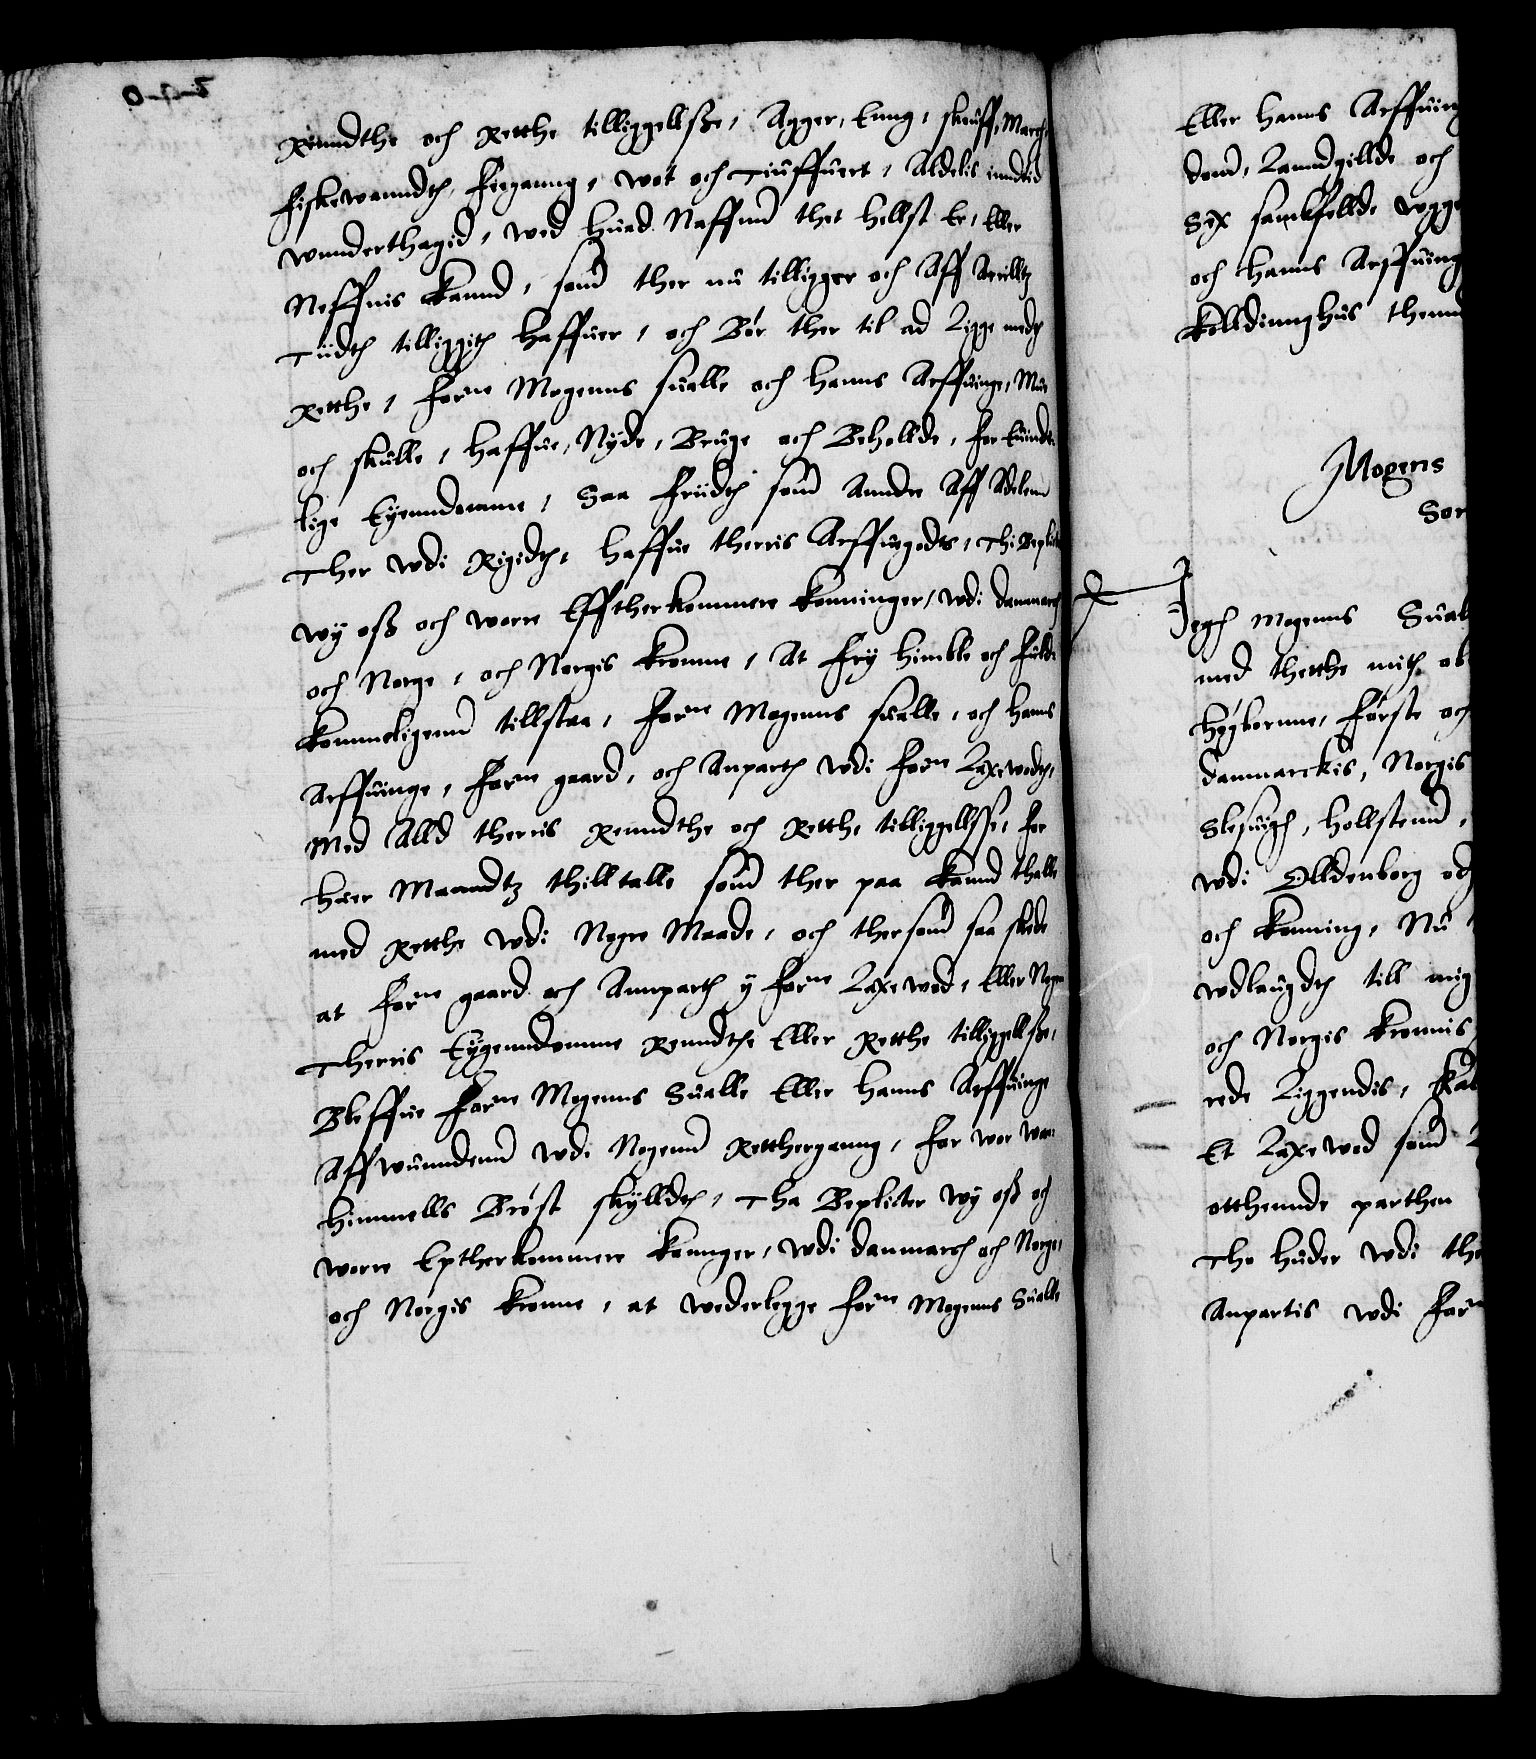 Renndthe och Retthe tilliggellsße, Agger, Enng, skouff, March
fiskewanndth, fieganng, wot och Tiuffuert, Aldelis inndtid
wunderthagid, wed huad Naffnn thet hellst Er, Eller
Neffnis kannd, som ther nu tilligger och Aff Arrilltz
Tiidth tilliggith haffuer, och Bør ther til ad Ligge medt
Retthe, forne Mogenns sualle och hanns Arffuinge, Mue
och skulle, haffue, Nyde, Bruge och Behollde, for Euindt
lige Eyenndomme, Saa friidth som Anndre Aff Adelenn
Ther wdi Rigidth, haffue therris Arffuegodts, Thi Beplicte
wy oß och worre Efftherkommere konninger, wdi danmarch
och Norge, och Norgis kronne, At fry himble och fuld
kommeligenn tillstaa, forne Mogenns sualle, och hans
Arffuinge, forne gaard, och Anparth wdi forne Laxewodth,
Med Alld therris Renndthe och Retthe tilliggellsße, for
huer Manndtz thilltalle som ther paa kannd thalle
med Retthe wdi Nogre Maade, och thersom saa skede
at forne gaard och Annparth y forne Laxewod, Eller Nogen
Therris Eygenndomme Renndthe Eller Retthe tilliggellsße,
Bleffue forne Mogenns Sualle Eller hanns Arffuinge
Affwunndenn wdi Nogenn Retthergang, for wor wan
himmells Brøst skylldth, Tha Beplicter wy oß och
worre Eptherkommere konnger, wdi danmarch och Norge,
och Norgis kronne, at wederlegge forne Mogenns Sualle
Eller hanns Arffuing
dom, Lanndgillde och
Sex samfellde wgger
och hanns Arffuing
Kolldinnghus thennd
Mogens
Sor
Jegh Mogenns Sual
med thetthe mith ob
høyborne, første och
danmarckis, Norgis
Slesuigh, hollstenn,
wdi Olldenborg och
och konning, Nu
wdlaugdth till mig
och Norgis kronnis
rede Liggendis, skal
Et Laxewod som
otthennde parthen
Tho huder wdi the
Anpartis wdi forne